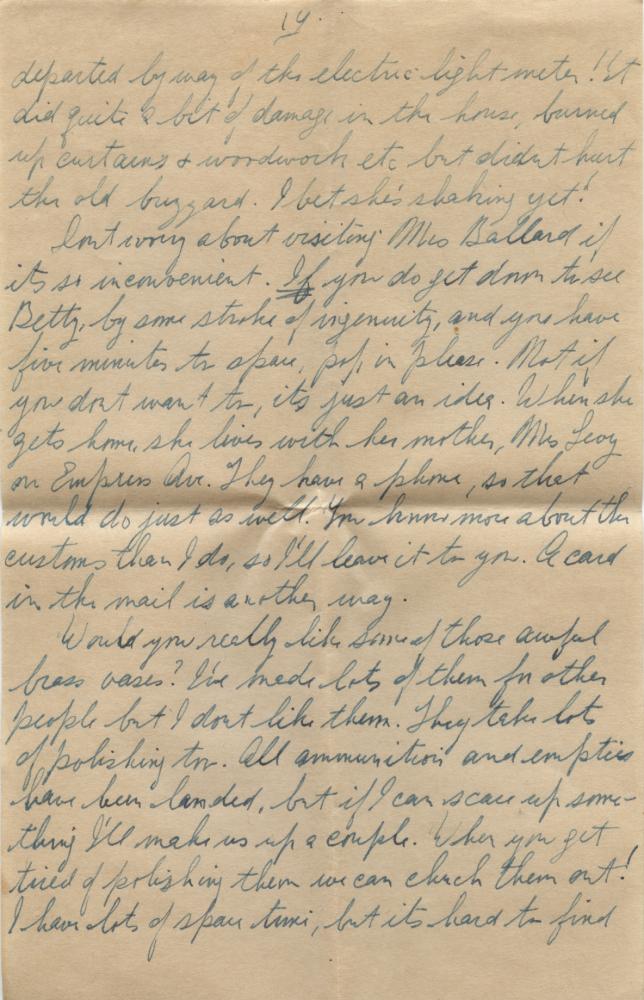 14.
departed by way of the electric light meter! It
did quite a bit of damage in the house, burned
up curtains & woodwork etc but didnt hurt
the old buzzard. I bet she's shaking yet!
Dont worry about visiting Mrs Ballard if
its so inconvenient. If you do get down to see
Betty, by some stroke of ingenuity, and you have
five minutes to spare, pop in please. Not if
you dont want to, its just an idea. When she
gets home, she lives with her mother, Mrs Levy
on Empress Ave. They have a phone, so that
would do just as well. You know more about the
customs than I do, so I'll leave it to you. A card
in the mail is another way.
Would you really like some of those awful
brass vases? I've made lots of them for other
people but I dont like them. They take lots
of polishing too. All ammunition and empties
have been landed, but if I can scare up some-
thing I'll make us up a couple. When you get
tired of polishing them we can chuck them out!
I have lots of spare time, but its hard to find